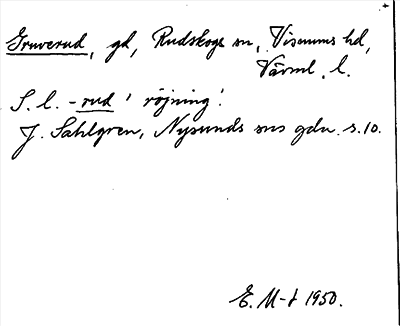 Gruverud, gd, Rudskoga sn, Visnums hd,
Värml. l.
S. l. -rud 'röjning'.
J. Sahlgren, Nysunds sns gdn. s. 10.
E. M-t 1950.